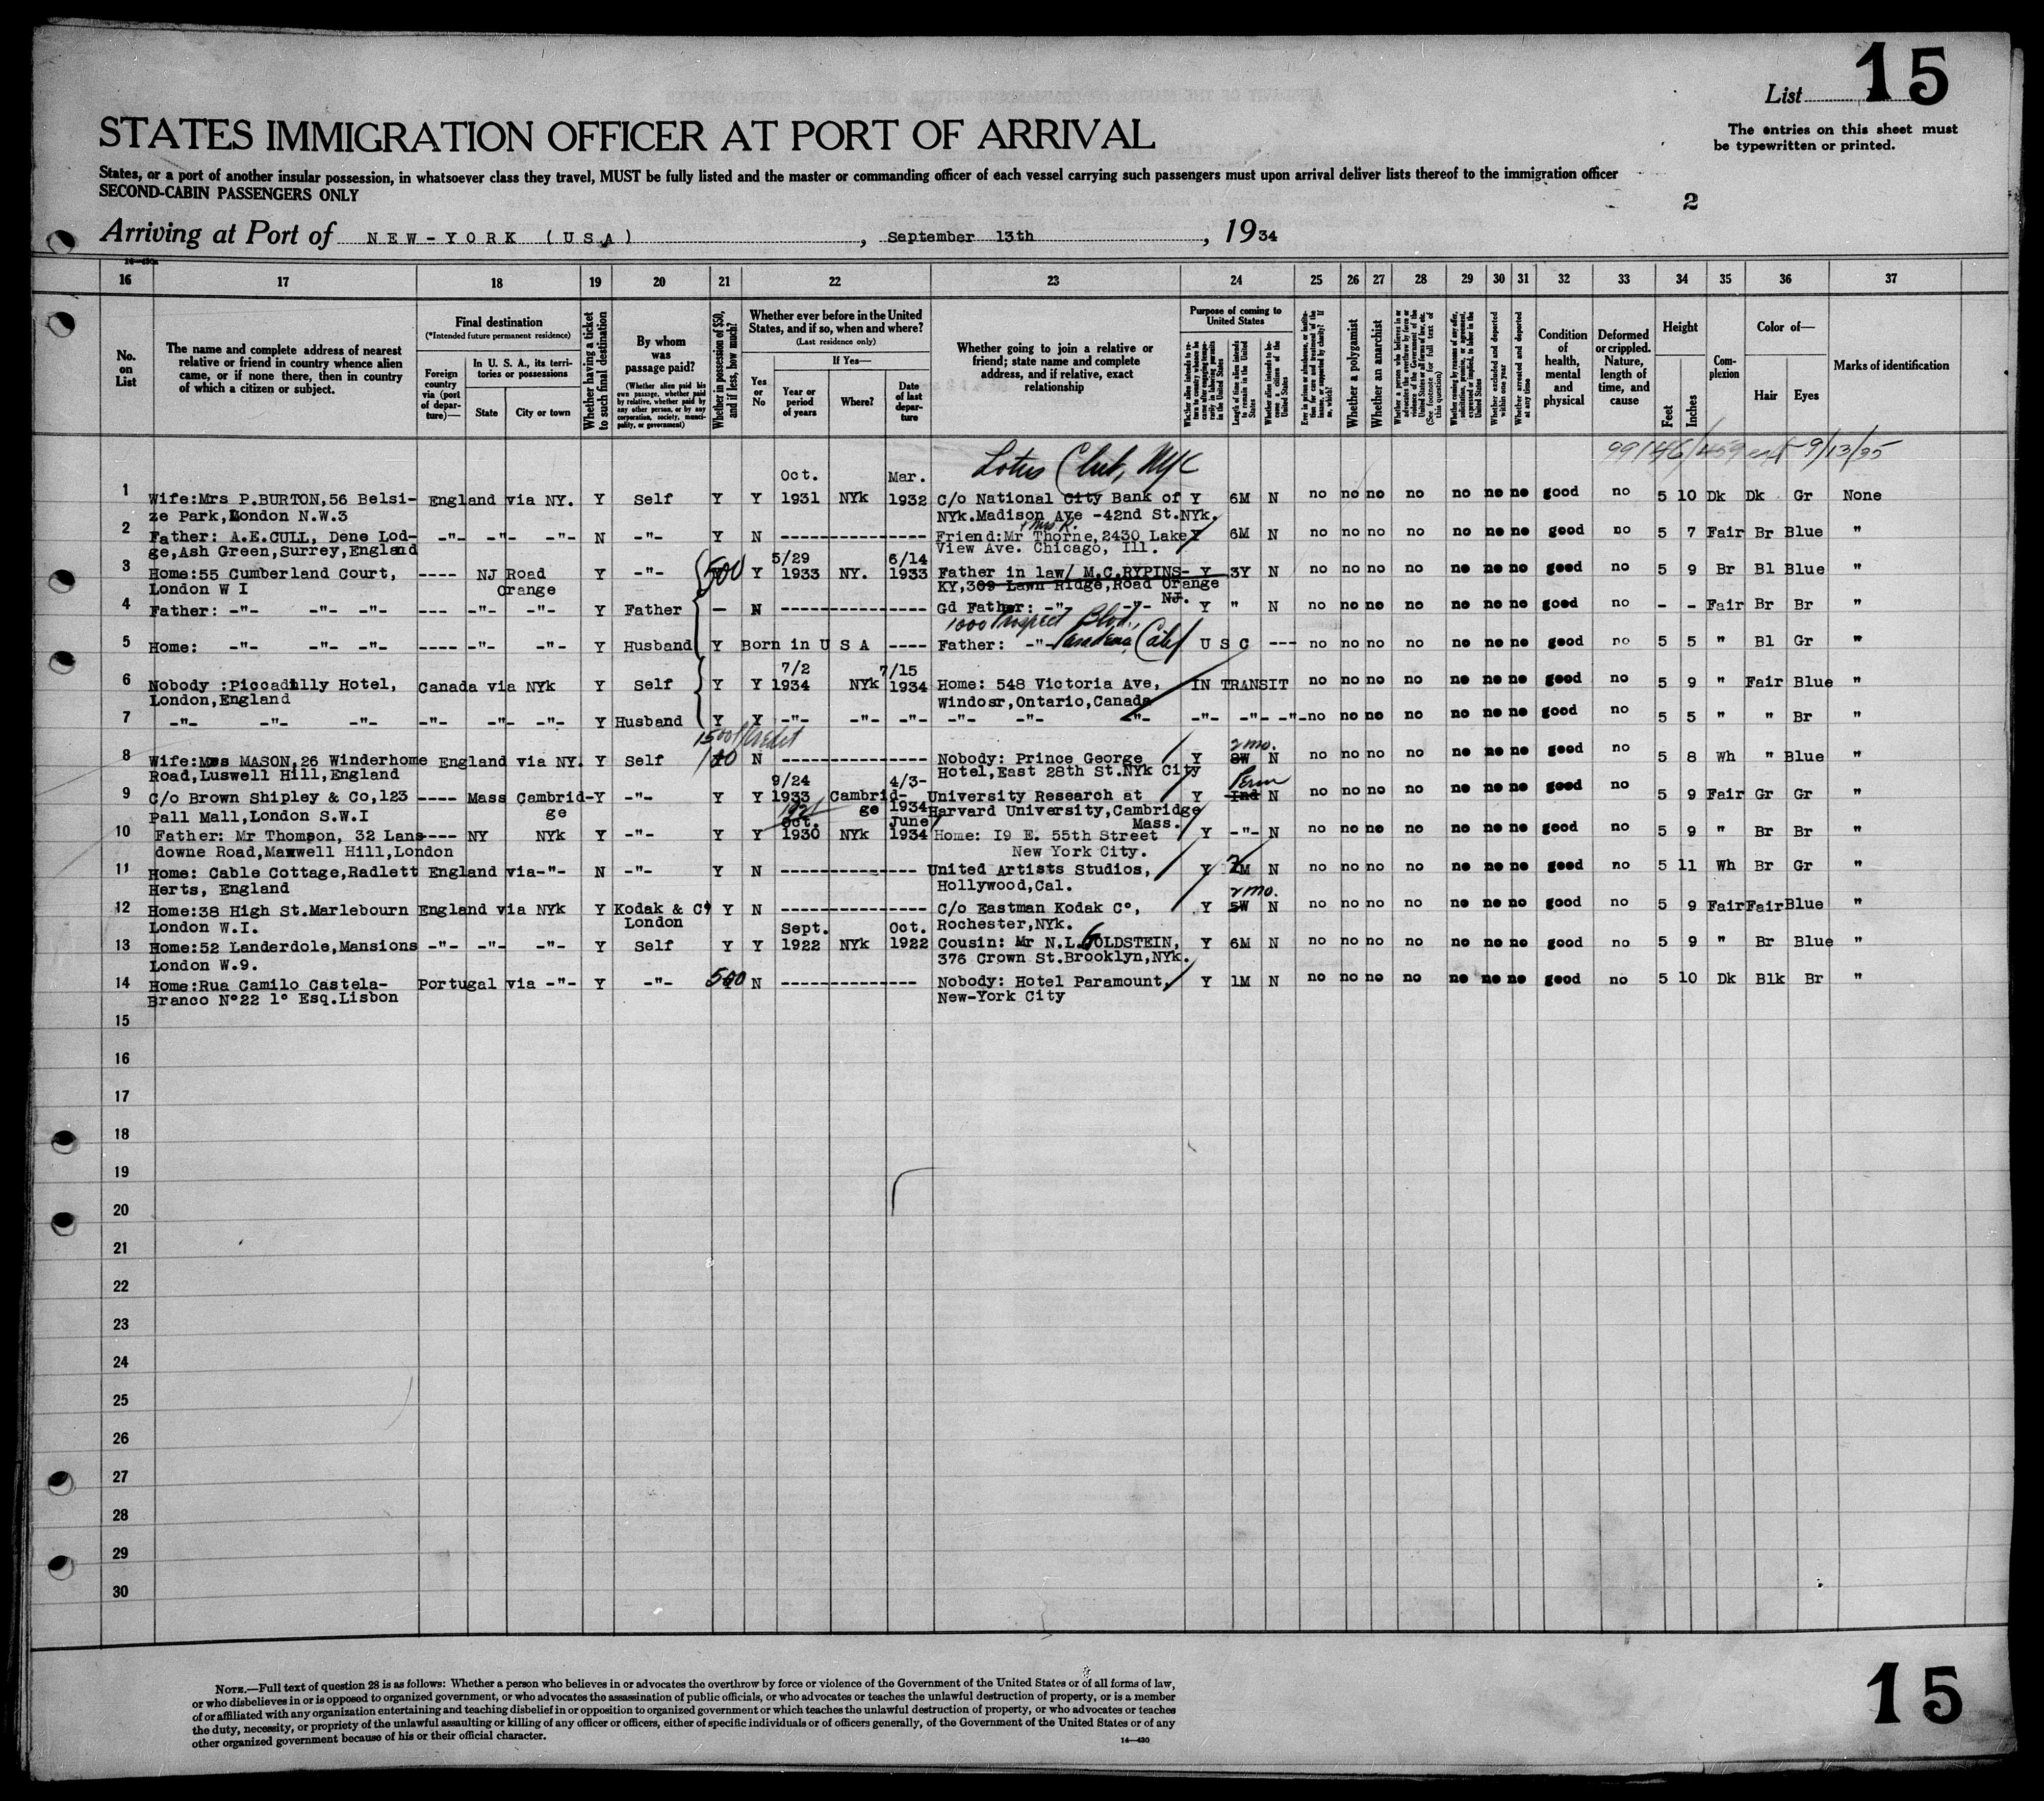 15
List
The entries on this sheet must
be typewritten or printed.
STATES IMMIGRATION OFFICER AT PORT OF ARRIVAL
States, or a port of another insular possession, in whatsoever class they travel, MUST be fully listed and the master or commanding officer of each vessel carrying such passengers must upon arrival deliver lists thereof to the immigration officer
SECOND-CABIN PASSENGERS ONLY
2
Arriving at Port of NEW-YORK (USA), September 13th, 1934
16 17 18 19 20 21 22 23 24 25 26 27 28 29 30 31 32 33 34 35 36 37
No. on List
The name and complete address of nearest
relative or friend in country whence alien
came, or if none there, then in country
of which a citizen or subject.
Final destination
(*Intended future permanent residence)
Foreign country via (port of departure)—
In U. S. A., its territories or possessions
State
City or town
Whether having a ticket to such final destination
By whom was passage paid?
(Whether alien paid his own passage, whether paid by relative, whether paid by any other person, or by any corporation, society, municipality, or government)
Whether in possession of $50, and if less, how much?
Whether ever before in the United States, and if so, when and where?
(Last residence only)
Yes or No
If Yes—
Year or period of years
Where?
Date of last departure
Whether going to join a relative or
friend; state name and complete
address, and if relative, exact
relationship
Purpose of coming to United States
Whether alien intends to return to country whence he came after engaging temporarily in laboring pursuits in the United States
Length of time alien intends to remain in the United States
Whether alien intends to become a citizen of the United States
Ever in prison or almshouse, or institution for care and treatment of the insane, or supported by charity? If so, which?
Whether a polygamist
Whether an anarchist
Whether a person who believes in or advocates the overthrow by force or violence of the Government of the United States or all forms of law, etc. (See footnote for full text of this question)
Whether coming by reasons of any offer, solicitation, promise, or agreement, expressed or implied, to labor in the United States
Whether excluded and deported within one year
Whether arrested and deported at any time
Condition of health, mental and physical
Deformed or crippled. Nature, length of time, and cause
Height
Feet
Inches
Complexion
Color of—
Hair
Eyes
Marks of identification
Lotus Club, NYC
9/13/35
Oct. Mar.
1 Wife:Mrs P.BURTON,56 Belsi- England via NY. Y Self Y Y 1931 NYk 1932 C/o National City Bank of Y 6M N no no no no no no no good no 5 10 Dk Dk Gr None
ze Park,London N.W.3 NYk.Madison Ave -42nd St.NYk.
+ Mrs R.
2 Father: A.E.CULL, Dene Lod- -"- -"- -"- N -"- Y N --------------- Friend:Mr Thorne,2430 Lake Y 6M N no no no no no no no good no 5 7 Fair Br Blue "
ge,Ash Green,Surrey,England View Ave. Chicago, Ill.
5/29 6/14
3 Home:55 Cumberland Court, ---- NJ Road Y -"- 500 Y 1933 NY. 1933 Father in law/ M.C.RYPINS- Y 3Y N no no no no no no no good no 5 9 Br Bl Blue "
London W I Orange KY,309 Lawn Ridge,Road Orange
NJ.
4 Father: -"- -"- -"- --- -"- -"- Y Father — N --------------- Gd Father: -"- -"- Y " N no no no no no no no good no - - Fair Br Br "
1000 Prospect Blvd.,
5 Home: -"- -"- -"- ---- -"- -"- Y Husband Y Born in U S A ---- Father: -"- Pasadena, Calif U S C --- no no no no no no no good no 5 5 " Bl Gr "
7/2 7/15
6 Nobody :Piccadilly Hotel, Canada via NYk Y Self Y Y 1934 NYk 1934 Home: 548 Victoria Ave, IN TRANSIT no no no no no no no good no 5 9 " Fair Blue "
London,England Windosr,Ontario,Canada
7 -"- -"- -"- -"- -"- -"- Y Husband Y Y -"- -"- -"- -"- -"- "- -"- -"- -"- no no no no no no no good no 5 5 " " Br "
1500 Credit
2 mo.
8 Wife:Mrs MASON,26 Winderhome England via NY. Y Self N --------------- Nobody: Prince George Y 8W N no no no no no no no good no 5 8 Wh " Blue "
Road,Luswell Hill,England Hotel,East 28th St.NYk City
9/24 4/3- Perm
9 C/o Brown Shipley & Co,123 ---- Mass Cambrid- Y -"- Y Y 1933 Cambrid- University Research at Y Ind N no no no no no no no good no 5 9 Fair Gr Gr "
Pall Mall,London S.W.I ge ge 1934 Harvard University,Cambridge
Oct. June Mass.
10 Father: Mr Thompson, 32 Lans ---- NY NYk Y -"- Y Y 1930 NYk 1934 Home: I9 E. 55th Street Y -"- N no no no no no no no good no 5 9 " Br Br "
downe Road,Maxwell Hill,London New York City.
11 Home: Cable Cottage,Radlett England via-"- N -"- Y N -------------- United Artists Studios, Y 7M N no no no no no no no good no 5 11 Wh Br Gr "
Herts, England Hollywood,Cal.
2 mo.
12 Home:38 High St.Marlebourn England via NYk Y Kodak & C° Y N --------------- C/o Eastman Kodak C°, Y 5W N no no no no no no no good no 5 9 Fair Fair Blue "
London W.I. London Rochester,NYk.
Sept. Oct.
13 Home:52 Landerdole,Mansions -"- -"- -"- Y Self Y Y 1922 NYk 1922 Cousin: Mr N.L.GOLDSTEIN, Y 6M N no no no no no no no good no 5 9 " Br Blue "
London W.9. 376 Crown St.Brooklyn,NYk.
14 Home:Rua Camilo Castela- Portugal via -"- Y -"- 500 N -------------- Nobody: Hotel Paramount, Y 1M N no no no no no no no good no 5 10 Dk Blk Br "
Branco N°22 1° Esq.Lisbon New-York City
15
16
17
18
19
20
21
22
23
24
25
26
27
28
29
30
NOTE.—Full text of question 28 is as follows: Whether a person who believes in or advocates the overthrow by force or violence of the Government of the United States or of all forms of law,
or who disbelieves in or is opposed to organized government, or who advocates the assassination of public officials, or who advocates or teaches the unlawful destruction of property, or is a member
of or affiliated with any organization entertaining and teaching disbelief in or opposition to organized government or which teaches the unlawful destruction of property, or who advocates or teaches
the duty, necessity, or propriety of the unlawful assaulting or killing of any officer or officers, either of specific individuals or of officers generally, of the Government of the United States or of any
other organized government because of his or their official character.
14—430
15